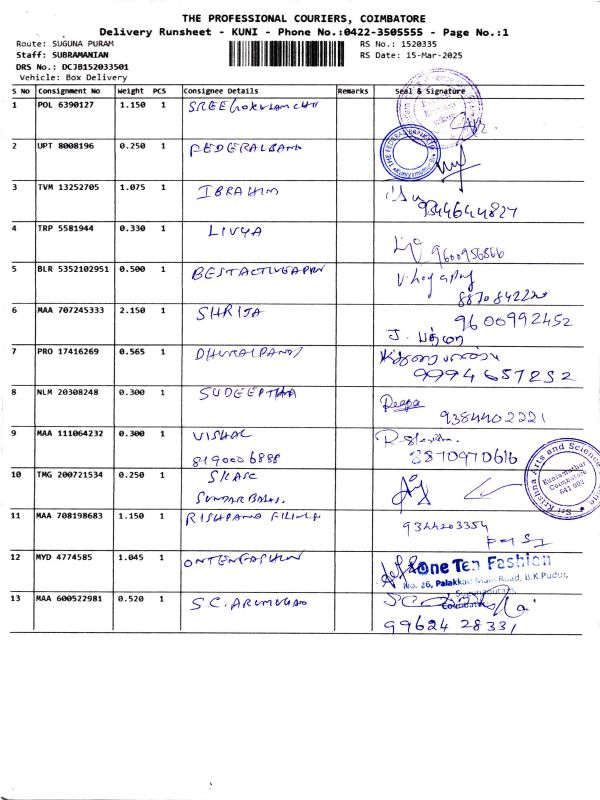 THE PROFESSIONAL COURIERS, COIMBATORE
Delivery Runsheet - KUNI - Phone No.:0422-3505555 - Page No.:1
Route: SUGUNA PURAM
RS No.: 1520335
Staff: SUBRAMANIAN
RS Date: 15-Mar-2025
DRS No.: DCJB152033501
Vehicle: Box Delivery
S No Consignment No Weight PCS Consignee Details Remarks Seal & Signature
1 POL 6390127 1.150 1
2 UPT 8008196 0.250 1 FEDERALBANK
THE FEDERAL BANK LTD
3 TVM 13252705 1.075 1 IBRAHIM
9344644827
4 TRP 5581944 0.330 1 LIVYA
9600956866
5 BLR 5352102951 0.500 1
6 MAA 707245333 2.150 1 SHRIJA
9600992452
J. பத்மா
7 PRO 17416269 0.565 1
9994657232
8 NLM 20308248 0.300 1 SUDEEPTHA
Deepa
9384402221
9 MAA 111064232 0.300 1 VISHAL
8190006888
8870970616
10 TMG 200721534 0.250 1 SKASC
SUNDARBALAJI.
Sri Krishna Arts and Science
Kuniamuthur
Coimbatore
641 008
11 MAA 708198683 1.150 1
9344203354
12 MYD 4774585 1.045 1 ONTENFASHION
One Ten Fashion
No. 26, Palakkad Main Road, B.K.Pudur,
Sugunapuram,
Coimbatore
13 MAA 600522981 0.520 1 S.C. ARUMUGAM
99624 28331